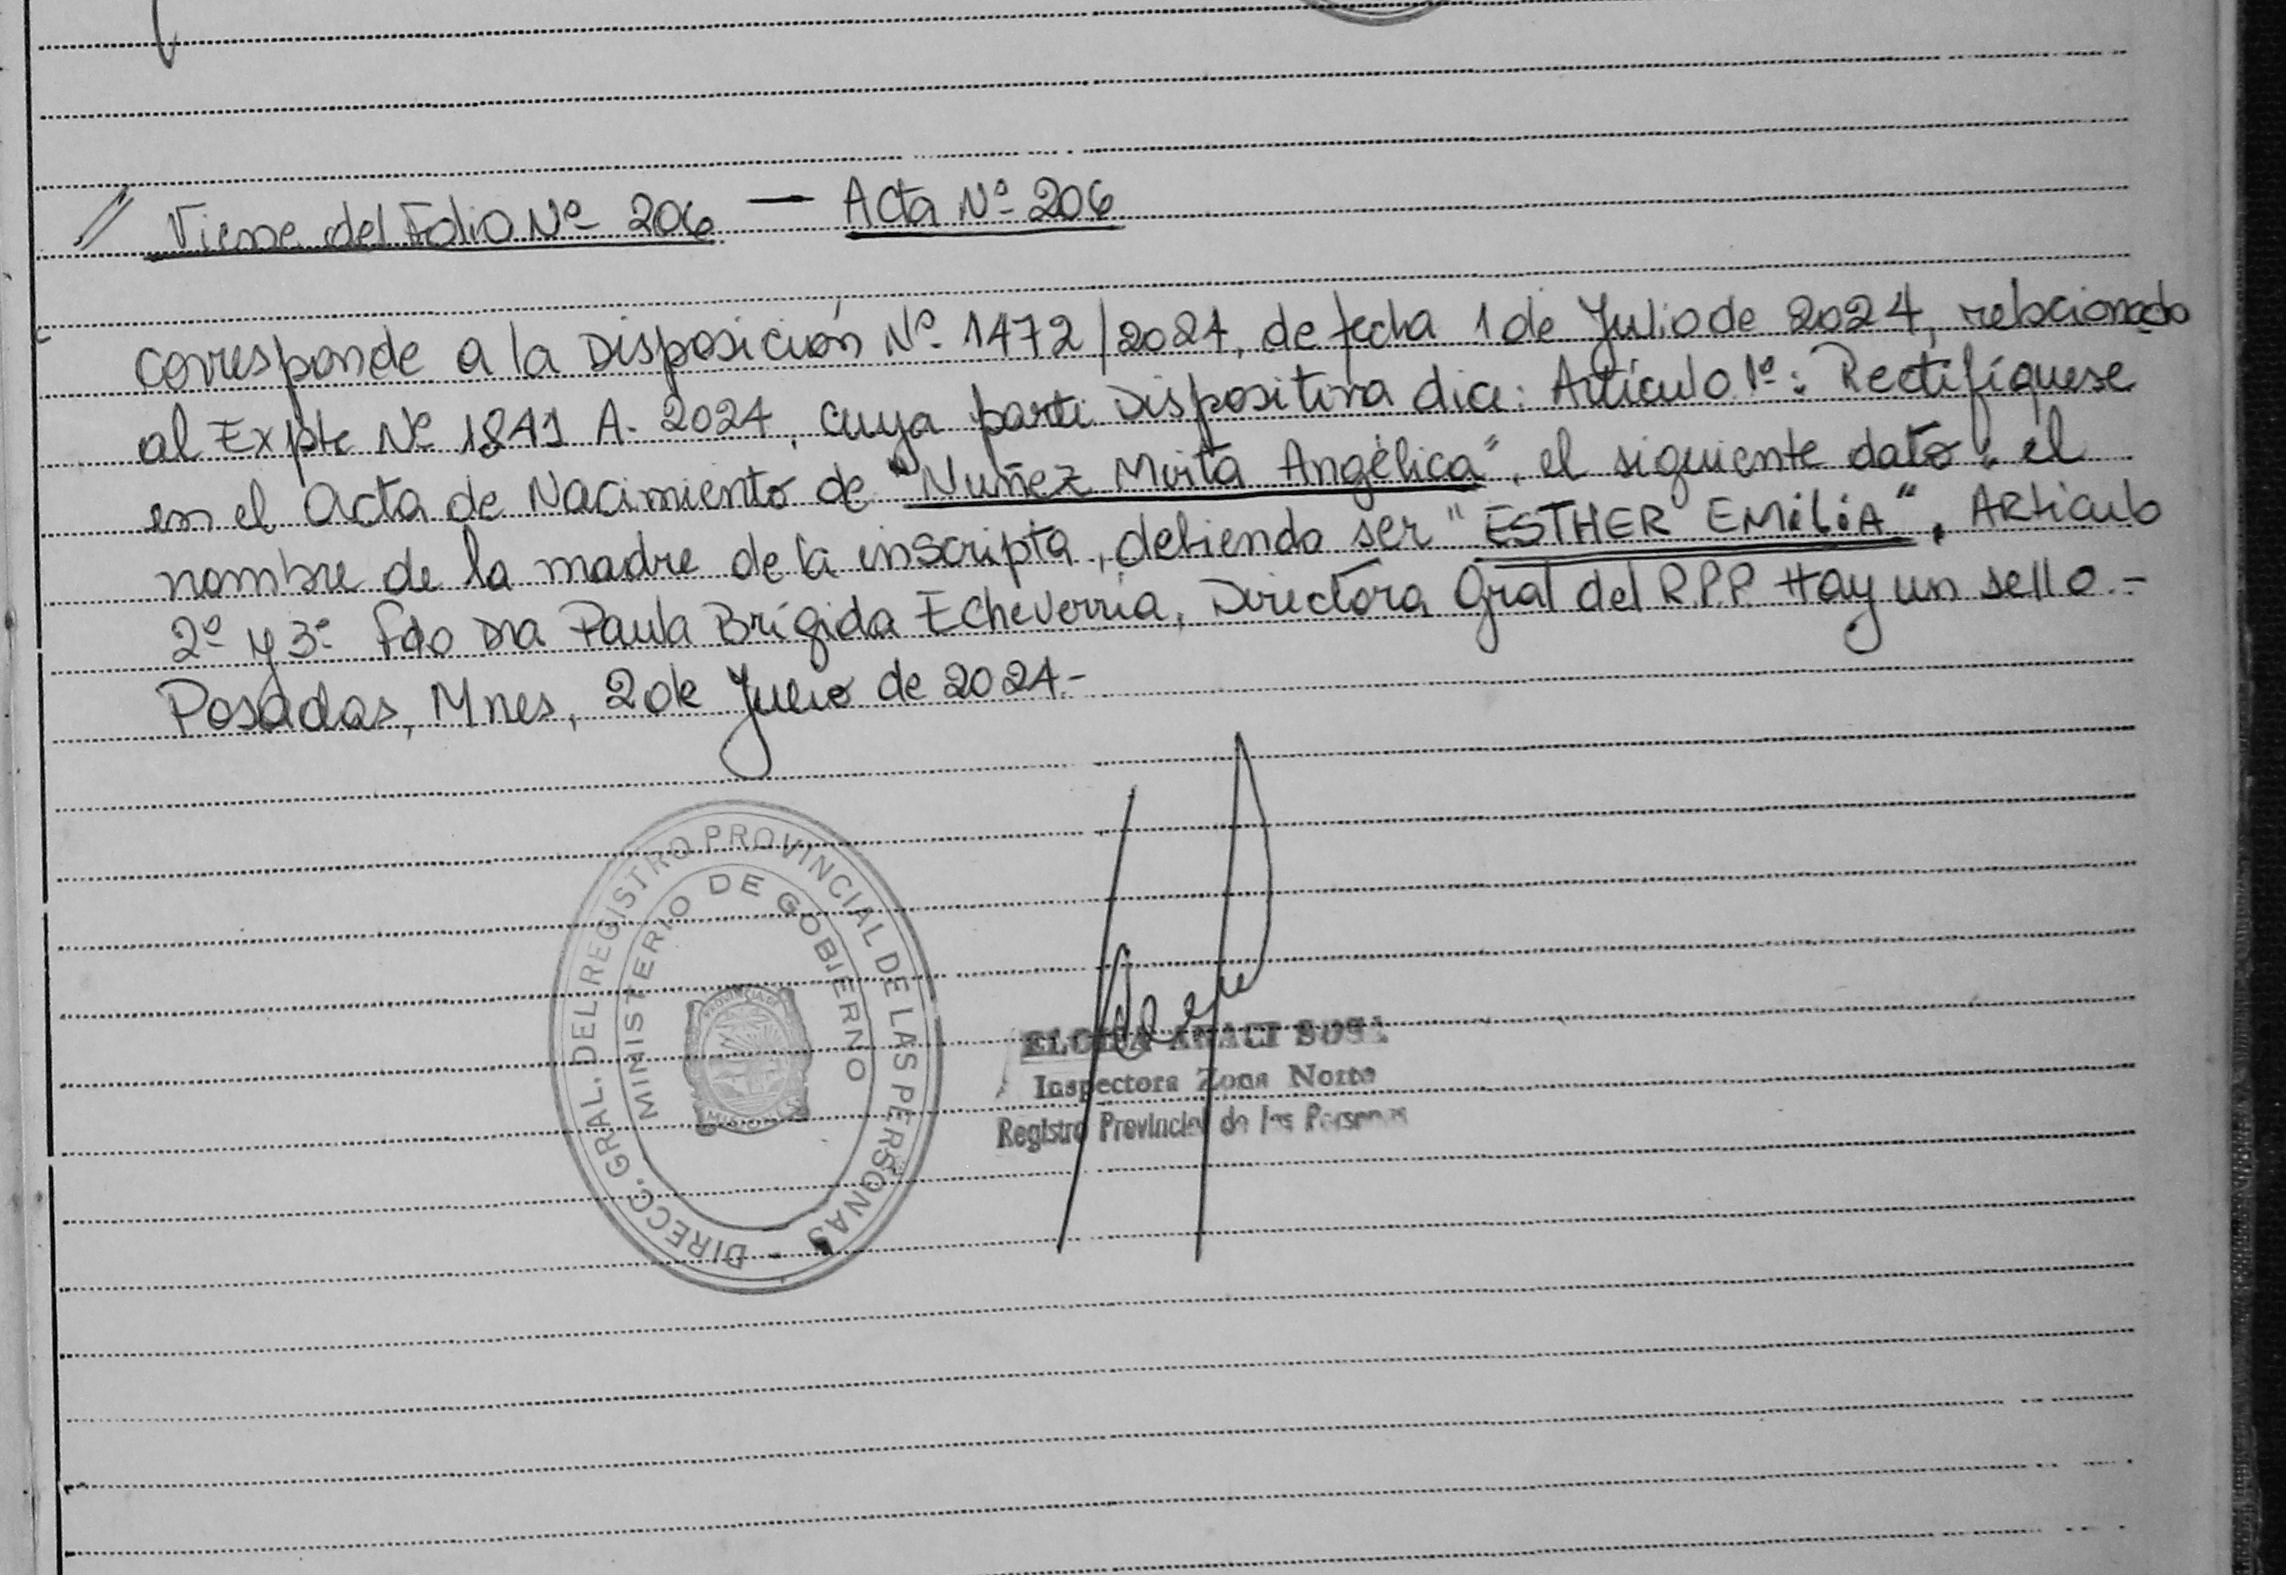 // Viene del Folio Nº 206 — Acta Nº 206
Corresponde a la Disposición Nº 1472/2024, de fecha 1 de Julio de 2024, relacionado
al Expte Nº 1841 A. 2024, cuya parte Dispositiva dice: Artículo 1º: Rectifíquese
en el Acta de Nacimiento de "Nuñez Mirta Angélica", el siguiente dato: el
nombre de la madre de la inscripta, debiendo ser "ESTHER EMiLiA". Articulo
2º y 3º fdo Dra Paula Brígida Echeverría, Directora Gral del R.P.P. Hay un sello.-
Posadas, Mnes, 2 de Julio de 2024.-
DIRECC. GRAL. DEL REGISTRO PROVINCIAL DE LAS PERSONAS
MINISTERIO DE GOBIERNO
PROVINCIA DE
MISIONES
ARACI SOSA
Inspectora Zona Norte
Registro Provincial de las Personas